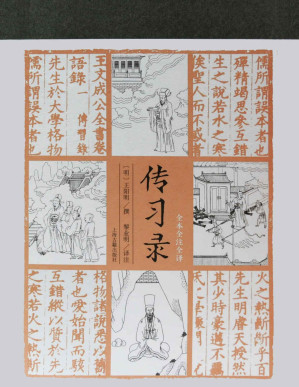 儒所謂誤本者也
殫精竭思參互錯
生之說若水之寒
俟聖人而不惑者
王文成公全書卷
語錄一 傳習錄
先生於大學格物
儒所謂誤本者也
传习录
全本全注全译
[明]王阳明／撰 黎业明／译注
上海古籍出版社
火之熱斷斷乎百
先生明睿天授然
其少時豪邁不羈
格物諸說悉以
者也愛始聞而駭
互錯縱以質於先
之寒若火之熱斷